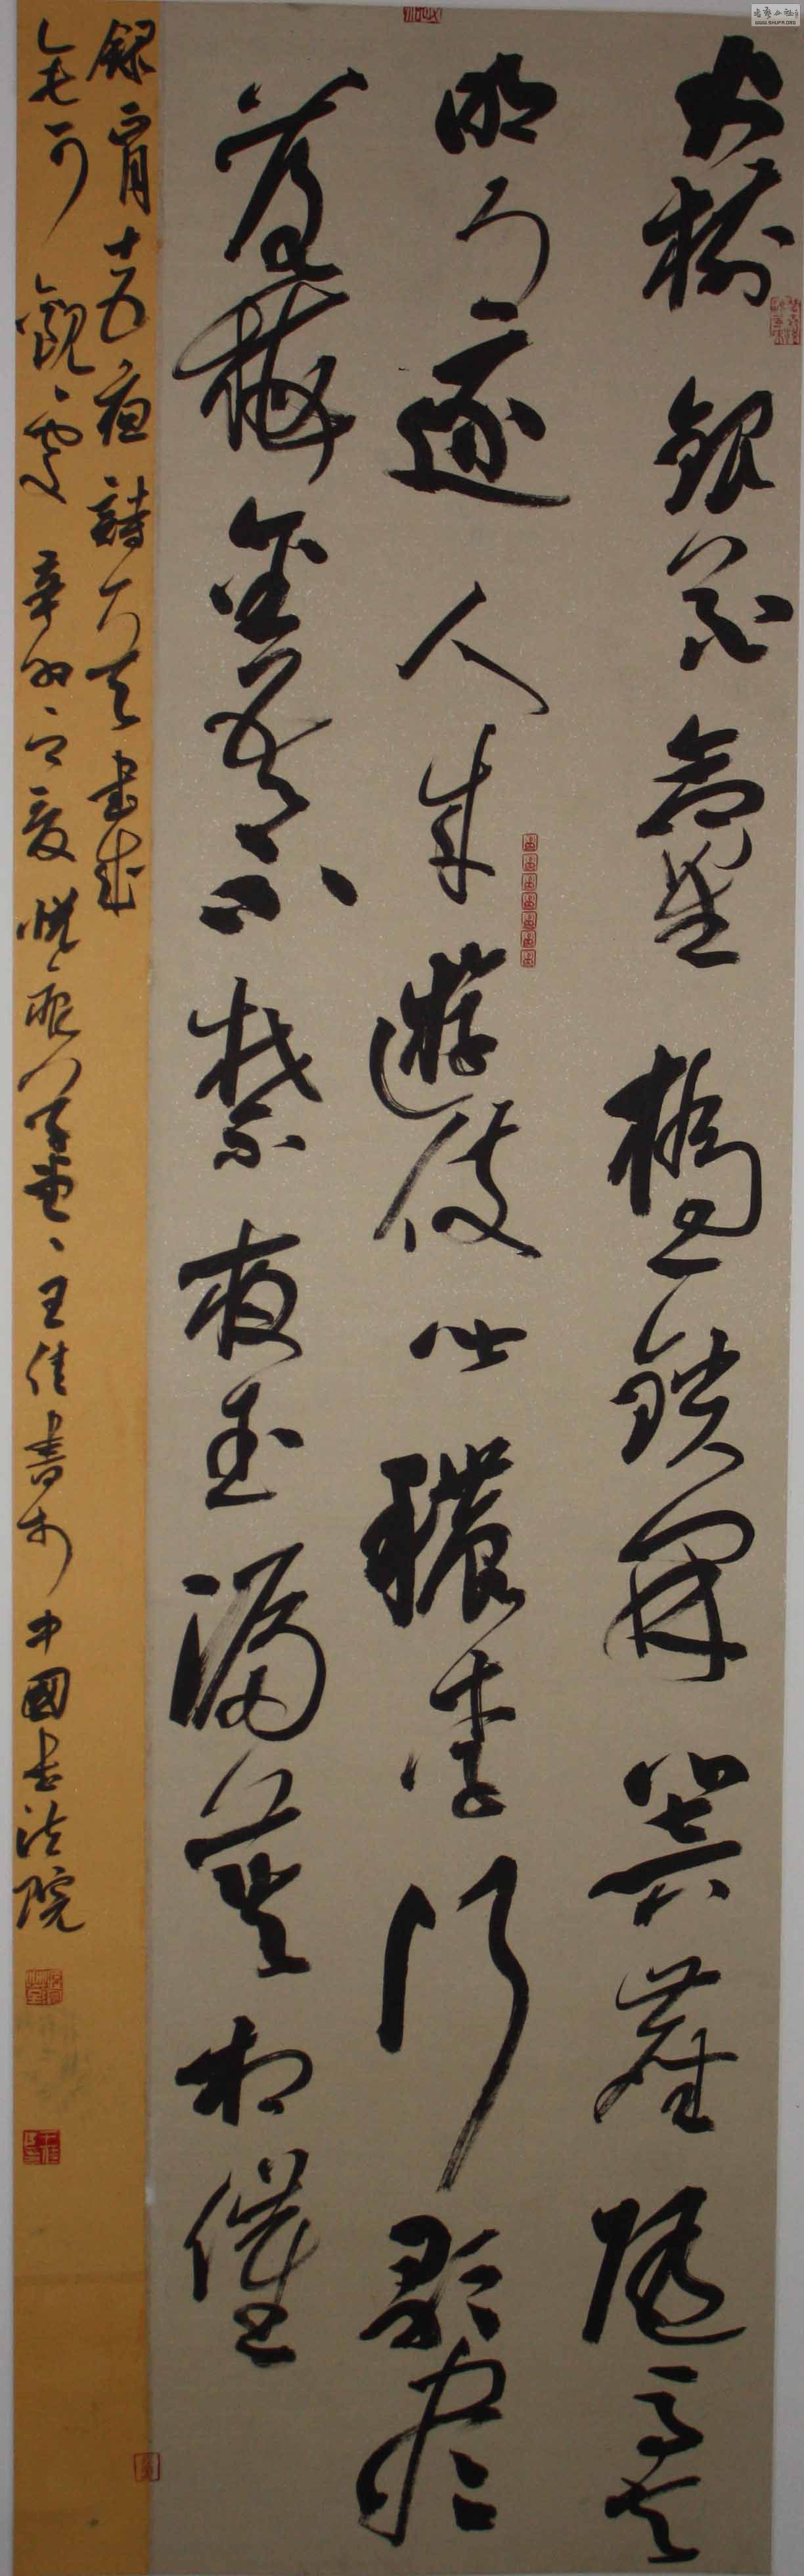 火樹銀花合星橋鐵開塵隨馬去
明月逐人來遊伎皆穠李行歌盡
落梅金吾不禁夜玉漏莫相催
錄宵十五夜詩書成
無可觀處辛卯之夏王佳書於中國書法院
WWW.SHUFA.ORG